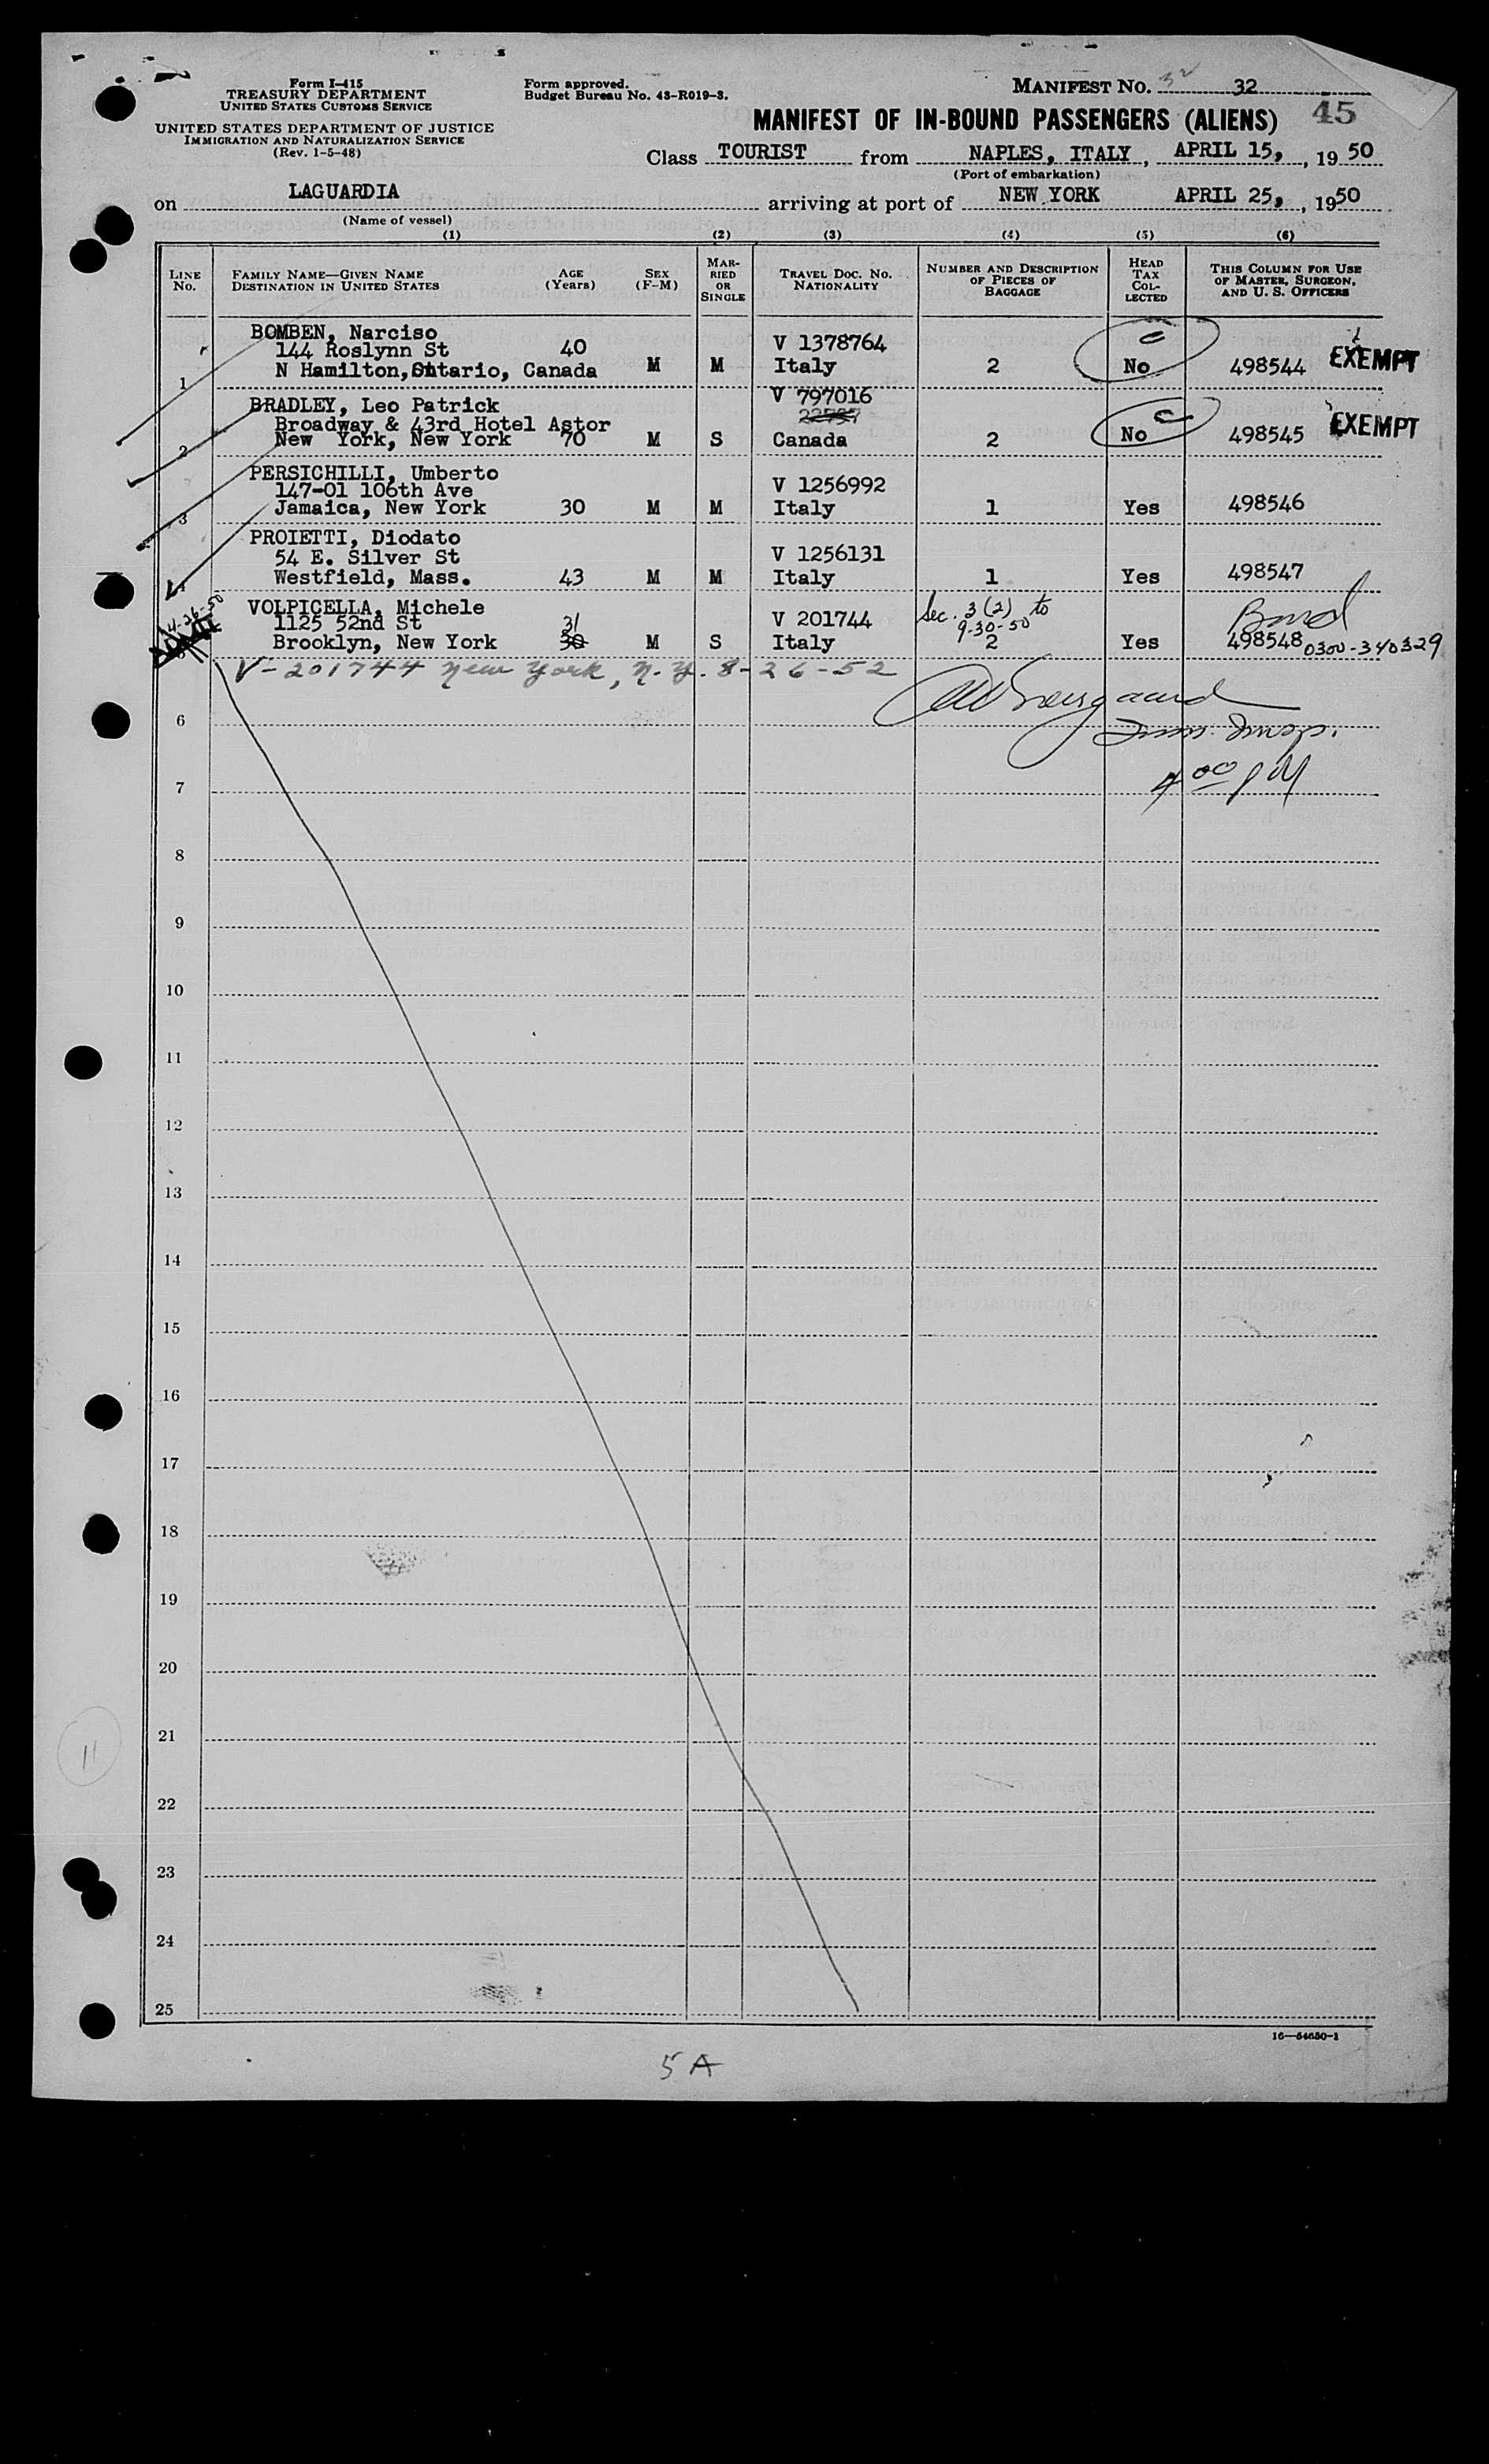 Form I-415
TREASURY DEPARTMENT
UNITED STATES CUSTOMS SERVICE
UNITED STATES DEPARTMENT OF JUSTICE
IMMIGRATION AND NATURALIZATION SERVICE
(Rev. 1-5-48)
Form approved.
Budget Bureau No. 43-R019-3.
MANIFEST No. 32 32
MANIFEST OF IN-BOUND PASSENGERS (ALIENS) 45
Class TOURIST from NAPLES, ITALY, APRIL 15, , 1950
(Port of embarkation)
on LAGUARDIA arriving at port of NEW YORK APRIL 25, , 1950
(Name of vessel)
(1) (2) (3) (4) (5) (6)
LINE No. FAMILY NAME—GIVEN NAME DESTINATION IN UNITED STATES AGE (Years) SEX (F-M) MARRIED OR SINGLE TRAVEL DOC. NO. NATIONALITY NUMBER AND DESCRIPTION OF PIECES OF BAGGAGE HEAD TAX COLLECTED THIS COLUMN FOR USE OF MASTER, SURGEON, AND U. S. OFFICERS
BOMBEN, Narciso
144 Roslynn St 40 V 1378764 C
1 N Hamilton, Ontario, Canada M M Italy 2 No 498544 EXEMPT
BRADLEY, Leo Patrick V 797016
Broadway & 43rd Hotel Astor 22797 C
2 New York, New York 70 M S Canada 2 No 498545 EXEMPT
PERSICHILLI, Umberto
147-01 106th Ave V 1256992
3 Jamaica, New York 30 M M Italy 1 Yes 498546
PROIETTI, Diodato
54 E. Silver St V 1256131
4 Westfield, Mass. 43 M M Italy 1 Yes 498547
4-26-50 VOLPICELLA, Michele Sec. 3(2) to Bond
1125 52nd St 31 V 201744 9-30-50
Brooklyn, New York 30 M S Italy 2 Yes 498548 0300-340329
V-201744 New York, N.Y. 8-26-52
6 Imm. Insp.
7 4 00 PM
8
9
10
11
12
13
14
15
16
17
18
19
20
21
11
22
23
24
25
16—54650-1
5 A